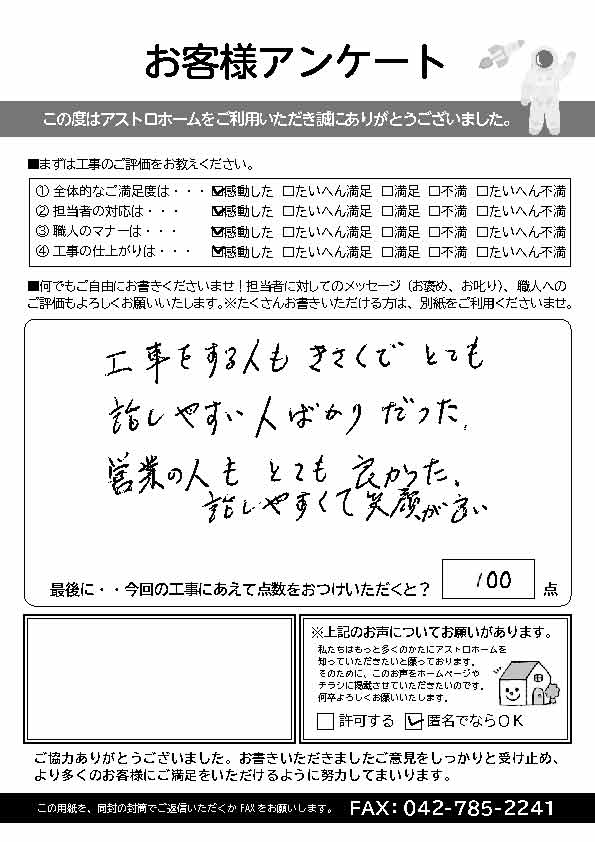 お客様アンケート
この度はアストロホームをご利用いただき誠にありがとうございました。
■まずは工事のご評価をお教えください。
① 全体的なご満足度は・・・ ☑感動した □たいへん満足 □満足 □不満 □たいへん不満
② 担当者の対応は・・・ ☑感動した □たいへん満足 □満足 □不満 □たいへん不満
③ 職人のマナーは・・・ ☑感動した □たいへん満足 □満足 □不満 □たいへん不満
④ 工事の仕上がりは・・・ ☑感動した □たいへん満足 □満足 □不満 □たいへん不満
■何でもご自由にお書きくださいませ！担当者に対してのメッセージ（お褒め、お叱り）、職人への
ご評価もよろしくお願いいたします。※たくさんお書きいただける方は、別紙をご利用くださいませ。
工事をする人も きさくで とても
話しやすい人ばかりだった。
営業の人も とても 良かった。
話しやすくて笑顔が
最後に・・今回の工事にあえて点数をおつけいただくと？ 100 点
※上記のお声についてお願いがあります。
私たちはもっと多くのかたにアストロホームを
知っていただきたいと願っております。
そのために、このお声をホームページや
チラシに掲載させていただきたいのです。
何卒よろしくお願いいたします。
□許可する ☑匿名でならＯＫ
ご協力ありがとうございました。お書きいただきましたご意見をしっかりと受け止め、
より多くのお客様にご満足をいただけるように努力してまいります。
この用紙を、同封の封筒でご返信いただくか FAX をお願いします。 FAX: 042-785-2241